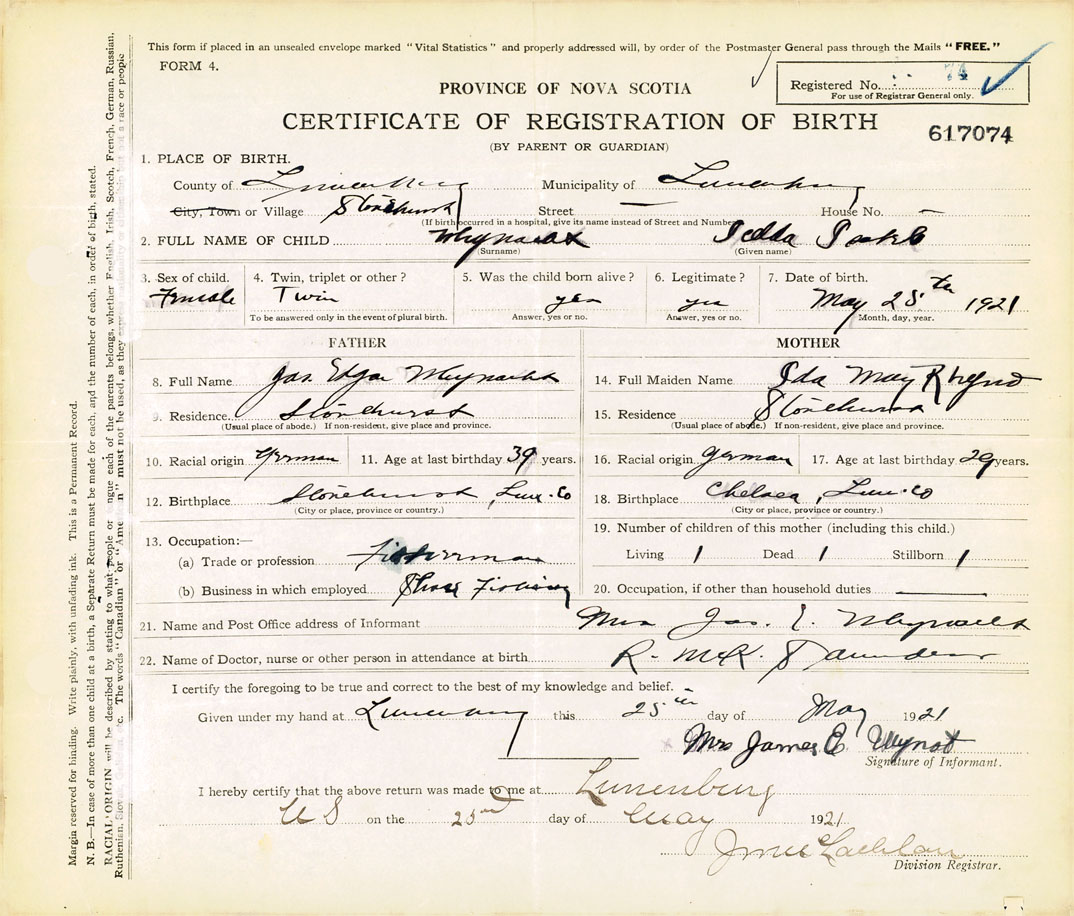 This form if placed in an unsealed envelope marked "Vital Statistics" and properly addressed will, by order of the Postmaster General pass through the Mails "FREE."
FORM 4.
Registered No. 74
For use of Registrar General only.
PROVINCE OF NOVA SCOTIA
CERTIFICATE OF REGISTRATION OF BIRTH
617074
(BY PARENT OR GUARDIAN)
1. PLACE OF BIRTH.
County of Lunenburg Municipality of Lunenburg
City, Town or Village Stonehurst Street — House No. —
(If birth occurred in a hospital, give its name instead of Street and Number)
2. FULL NAME OF CHILD Whynacht
(Surname) (Given name)
3. Sex of child. 4. Twin, triplet or other? 5. Was the child born alive? 6. Legitimate? 7. Date of birth.
Female Twin yes yes May 25th 1921
To be answered only in the event of plural birth. Answer, yes or no. Answer, yes or no. Month, day, year.
FATHER
8. Full Name Jas. Edgar Whynacht
9. Residence. Stonehurst
(Usual place of abode.) If non-resident, give place and province.
10. Racial origin German 11. Age at last birthday 39 years.
12. Birthplace Stonehurst, Lun. Co
(City or place, province or country.)
13. Occupation:—
(a) Trade or profession Fisherman
(b) Business in which employed Shore Fishing
MOTHER
14. Full Maiden Name Ida May
15. Residence Stonehurst
(Usual place of abode.) If non-resident, give place and province.
16. Racial origin German 17. Age at last birthday 29 years.
18. Birthplace Chelsea, Lun. Co
(City or place, province or country.)
19. Number of children of this mother (including this child.)
Living 1 Dead 1 Stillborn 1
20. Occupation, if other than household duties —
21. Name and Post Office address of Informant Mrs Jas. E. Whynacht
22. Name of Doctor, nurse or other person in attendance at birth R. McK. Saunders
I certify the foregoing to be true and correct to the best of my knowledge and belief.
Given under my hand at Lunenburg this 25th day of May 1921
Mrs James E Wynot
Signature of Informant.
I hereby certify that the above return was made to me at Lunenburg
N S on the 25 day of May 1921.
Division Registrar.
Margin reserved for binding. Write plainly, with unfading ink. This is a Permanent Record.
N. B.—In case of more than one child at a birth, a Separate Return must be made for each, and the number of each, in order of birth, stated.
RACIAL ORIGIN will be described by stating to what people or ague each of the parents belongs, whether English, Irish, Scotch, French, German, Russian,
Ruthenian, etc. The words "Canadian" or "American" must not be used, as they a race or people